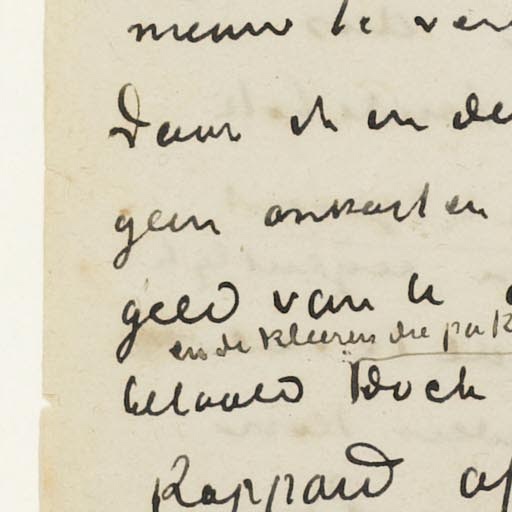 nieuw te ver
Daar ik en de
geen onkosten
geld van U
en de kleeren die pa k
betaald Doch
Rappard of